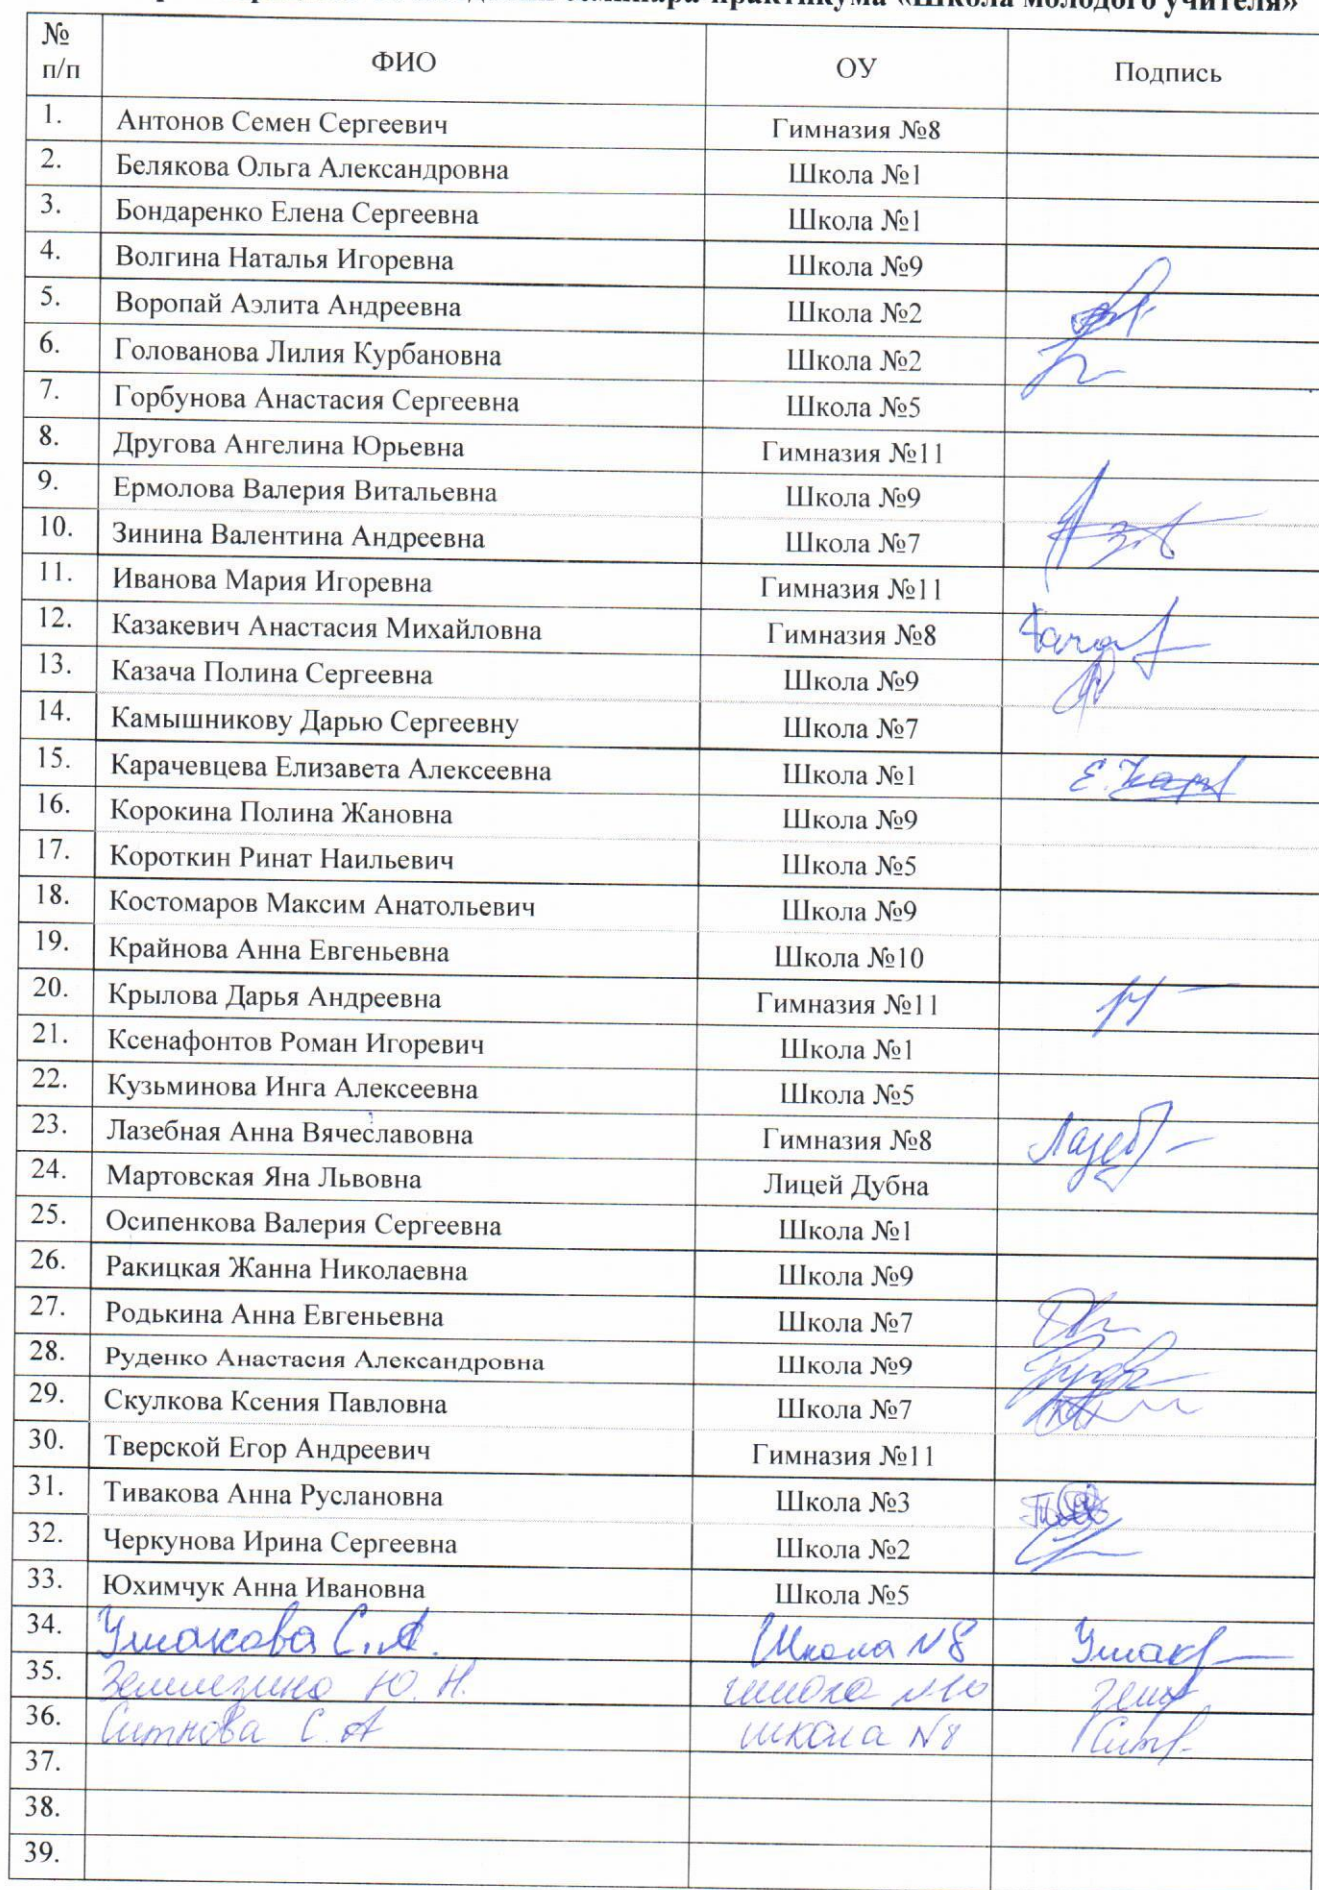 семинара-практикума «Школа молодого учителя»
№ п/п ФИО ОУ Подпись
1. Антонов Семен Сергеевич Гимназия №8
2. Белякова Ольга Александровна Школа №1
3. Бондаренко Елена Сергеевна Школа №1
4. Волгина Наталья Игоревна Школа №9
5. Воропай Аэлита Андреевна Школа №2
6. Голованова Лилия Курбановна Школа №2
7. Горбунова Анастасия Сергеевна Школа №5
8. Другова Ангелина Юрьевна Гимназия №11
9. Ермолова Валерия Витальевна Школа №9
10. Зинина Валентина Андреевна Школа №7
11. Иванова Мария Игоревна Гимназия №11
12. Казакевич Анастасия Михайловна Гимназия №8
13. Казача Полина Сергеевна Школа №9
14. Камышникову Дарью Сергеевну Школа №7
15. Карачевцева Елизавета Алексеевна Школа №1
16. Корокина Полина Жановна Школа №9
17. Короткин Ринат Наильевич Школа №5
18. Костомаров Максим Анатольевич Школа №9
19. Крайнова Анна Евгеньевна Школа №10
20. Крылова Дарья Андреевна Гимназия №11
21. Ксенафонтов Роман Игоревич Школа №1
22. Кузьминова Инга Алексеевна Школа №5
23. Лазебная Анна Вячеславовна Гимназия №8 Лазеб
24. Мартовская Яна Львовна Лицей Дубна
25. Осипенкова Валерия Сергеевна Школа №1
26. Ракицкая Жанна Николаевна Школа №9
27. Родькина Анна Евгеньевна Школа №7
28. Руденко Анастасия Александровна Школа №9
29. Скулкова Ксения Павловна Школа №7
30. Тверской Егор Андреевич Гимназия №11
31. Тивакова Анна Руслановна Школа №3
32. Черкунова Ирина Сергеевна Школа №2
33. Юхимчук Анна Ивановна Школа №5
34. Ушакова С.А. Школа №8 Ушак
35. Ю.Н. школа №10
36. Ситнова С.А школа №8
37.
38.
39.